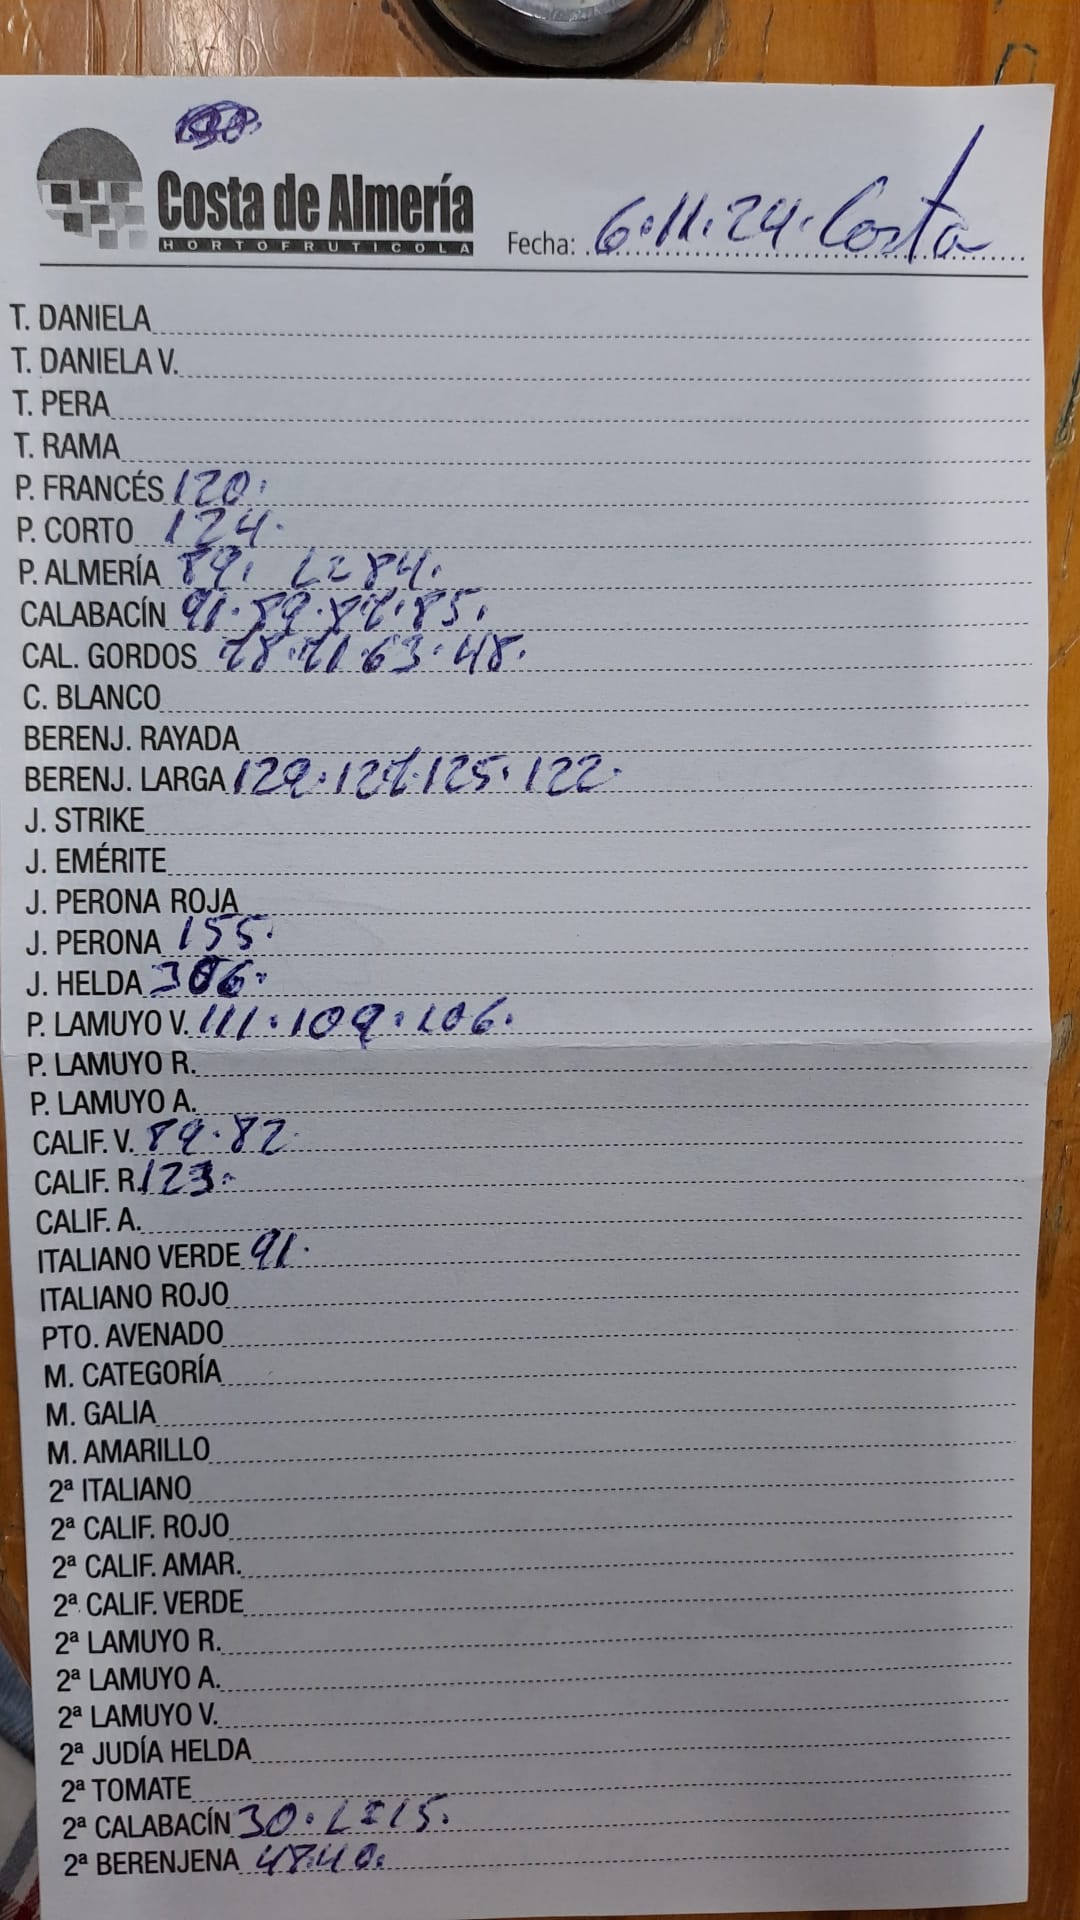 Costa de Almería
HORTOFRUTICOLA
Fecha: 6.11.24. Costa
T. DANIELA
T. DANIELA V.
T. PERA
T. RAMA
P. FRANCÉS 120.
P. CORTO 124.
P. ALMERÍA 89. L=84.
CALABACÍN 91.89.87.85.
CAL. GORDOS 78.71.63.48.
C. BLANCO
BERENJ. RAYADA
BERENJ. LARGA 129.127.125.122.
J. STRIKE
J. EMÉRITE
J. PERONA ROJA
J. PERONA 155.
J. HELDA 306.
P. LAMUYO V. 111.109.106.
P. LAMUYO R.
P. LAMUYO A.
CALIF. V. 89.82.
CALIF. R. 123.
CALIF. A.
ITALIANO VERDE 91.
ITALIANO ROJO
PTO. AVENADO
M. CATEGORÍA
M. GALIA
M. AMARILLO
2ª ITALIANO
2ª CALIF. ROJO
2ª CALIF. AMAR.
2ª CALIF. VERDE
2ª LAMUYO R.
2ª LAMUYO A.
2ª LAMUYO V.
2ª JUDÍA HELDA
2ª TOMATE
2ª CALABACÍN 30. L=15.
2ª BERENJENA 48.40.